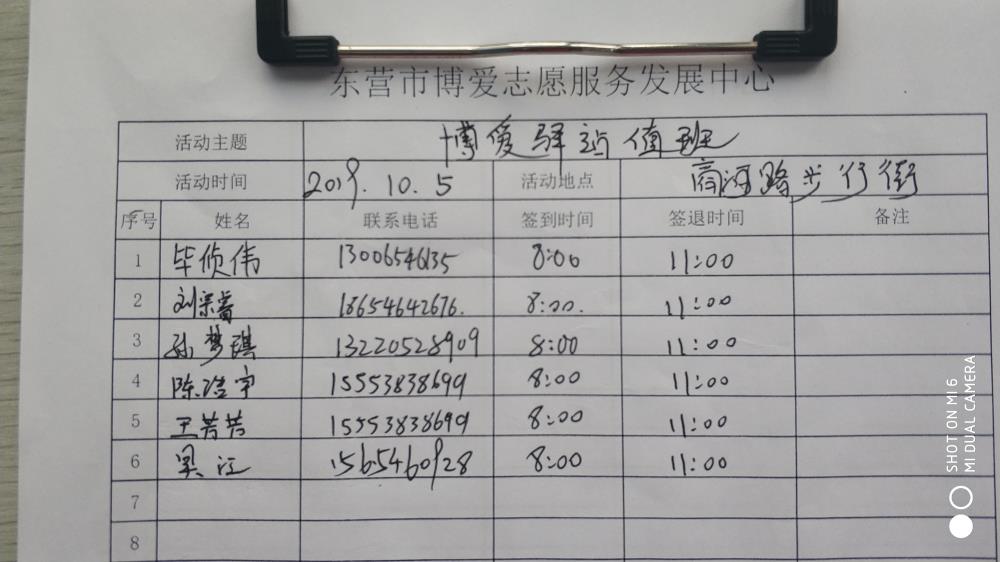 东营市博爱志愿服务发展中心
活动主题 博爱驿站值班
活动时间 2019.10.5 活动地点 商河路步行街
序号 姓名 联系电话 签到时间 签退时间 备注
1 毕侦伟 13006546135 8:00 11:00
2 刘宗 18654642676. 8:00. 11:00
3 孙梦琪 13220528909 8:00 11:00
4 陈浩宇 15553838699 8:00 11:00
5 王芳芳 15553838699 8:00 11:00
6 吴江 1565460928 8:00 11:00
7
8
SHOT ON MI 6
MI DUAL CAMERA